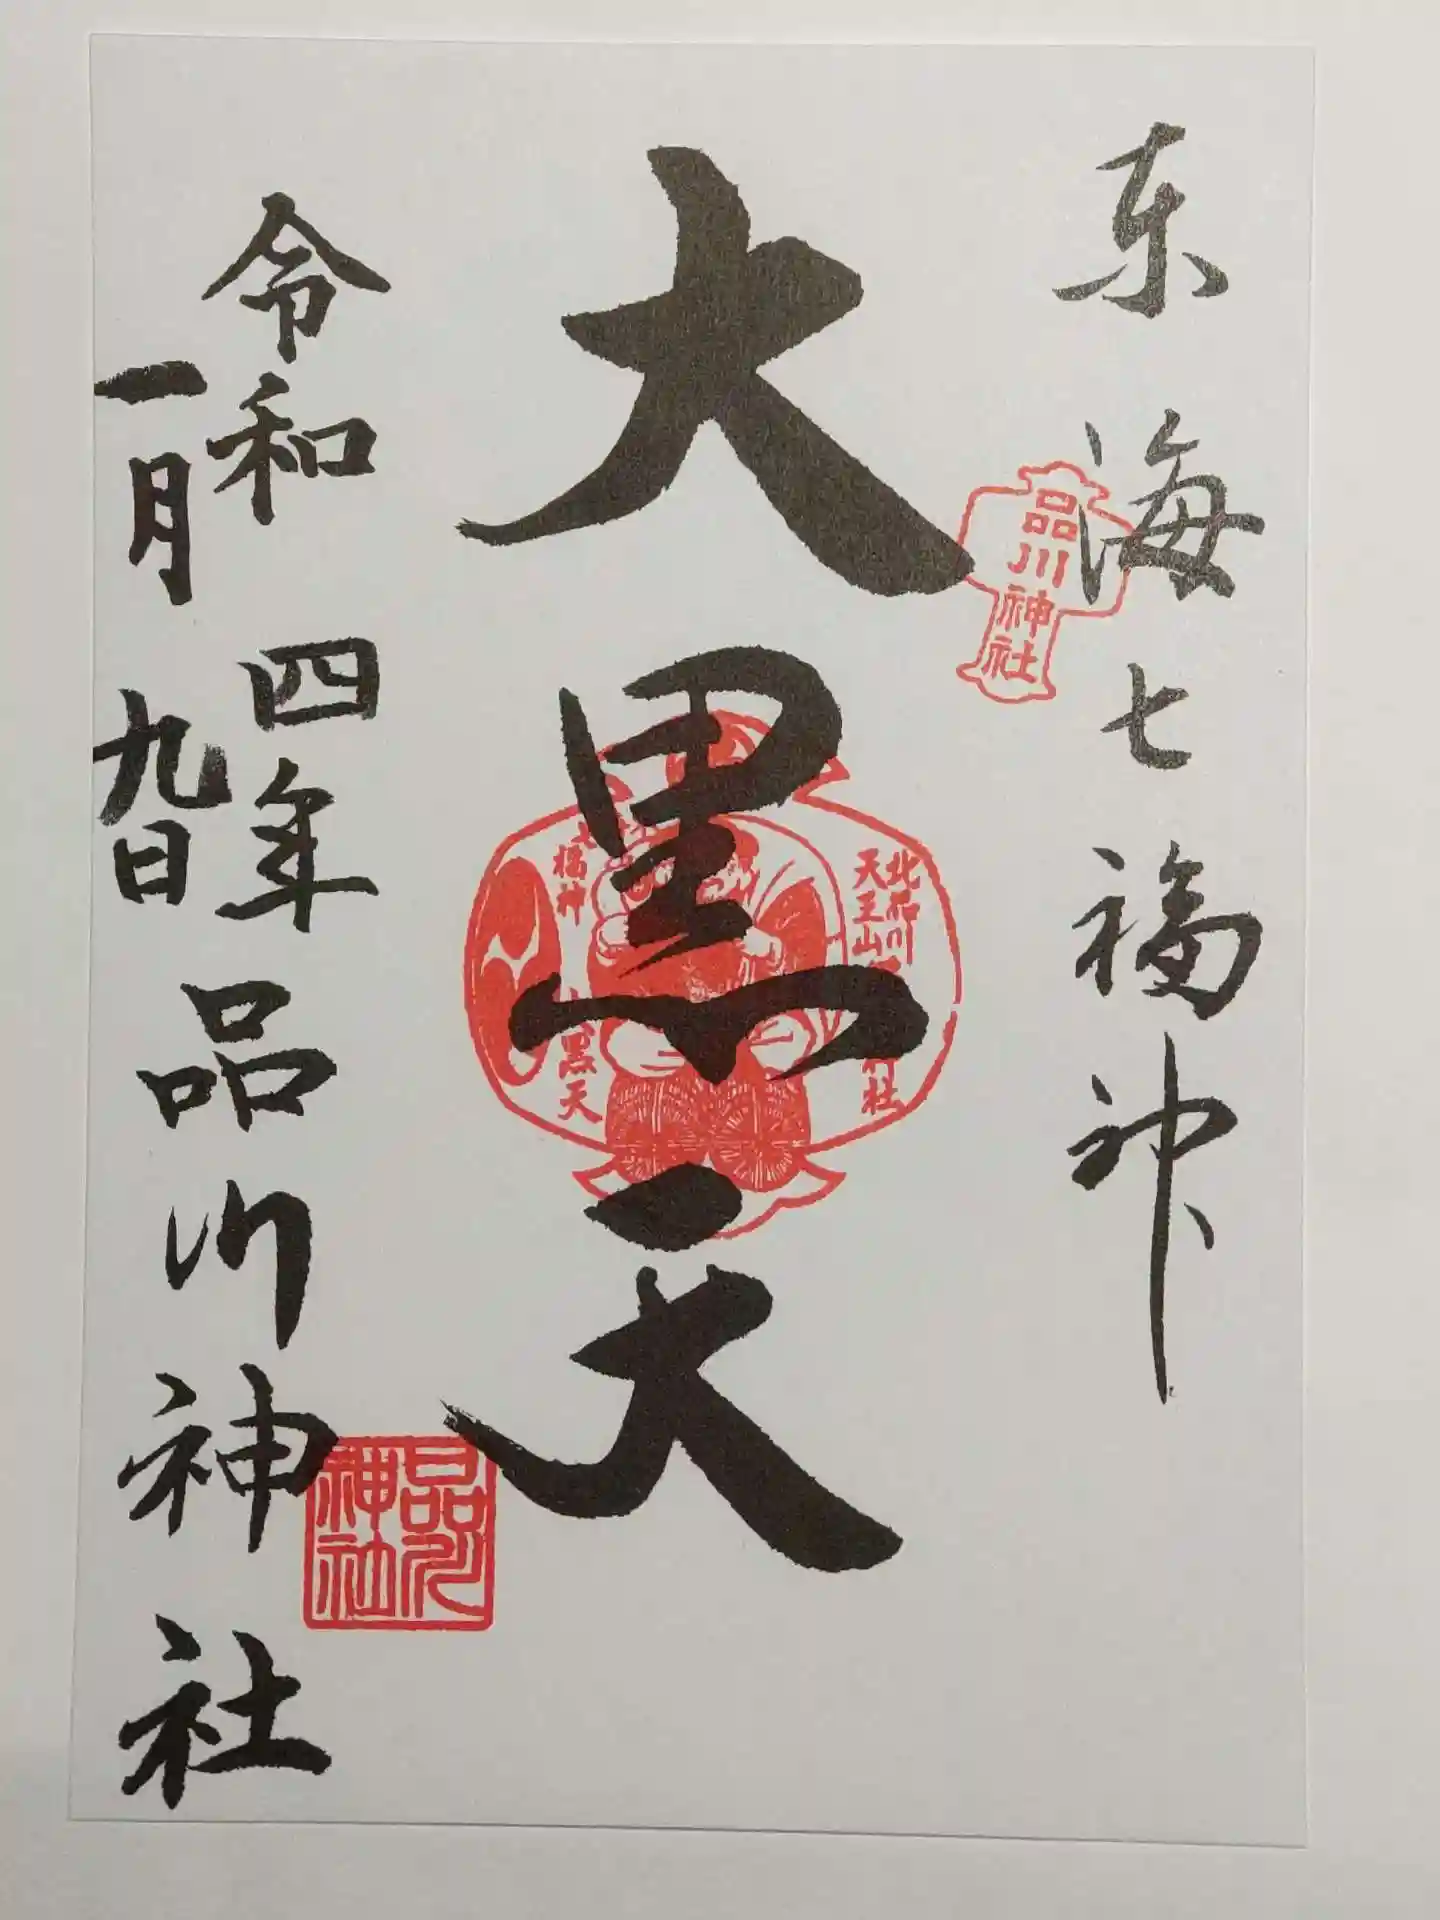 東海七福神
品川神社
大黒天
北品川
天王山
社
七福神
大黒天
令和四年
一月九日
品川神社
品川神社